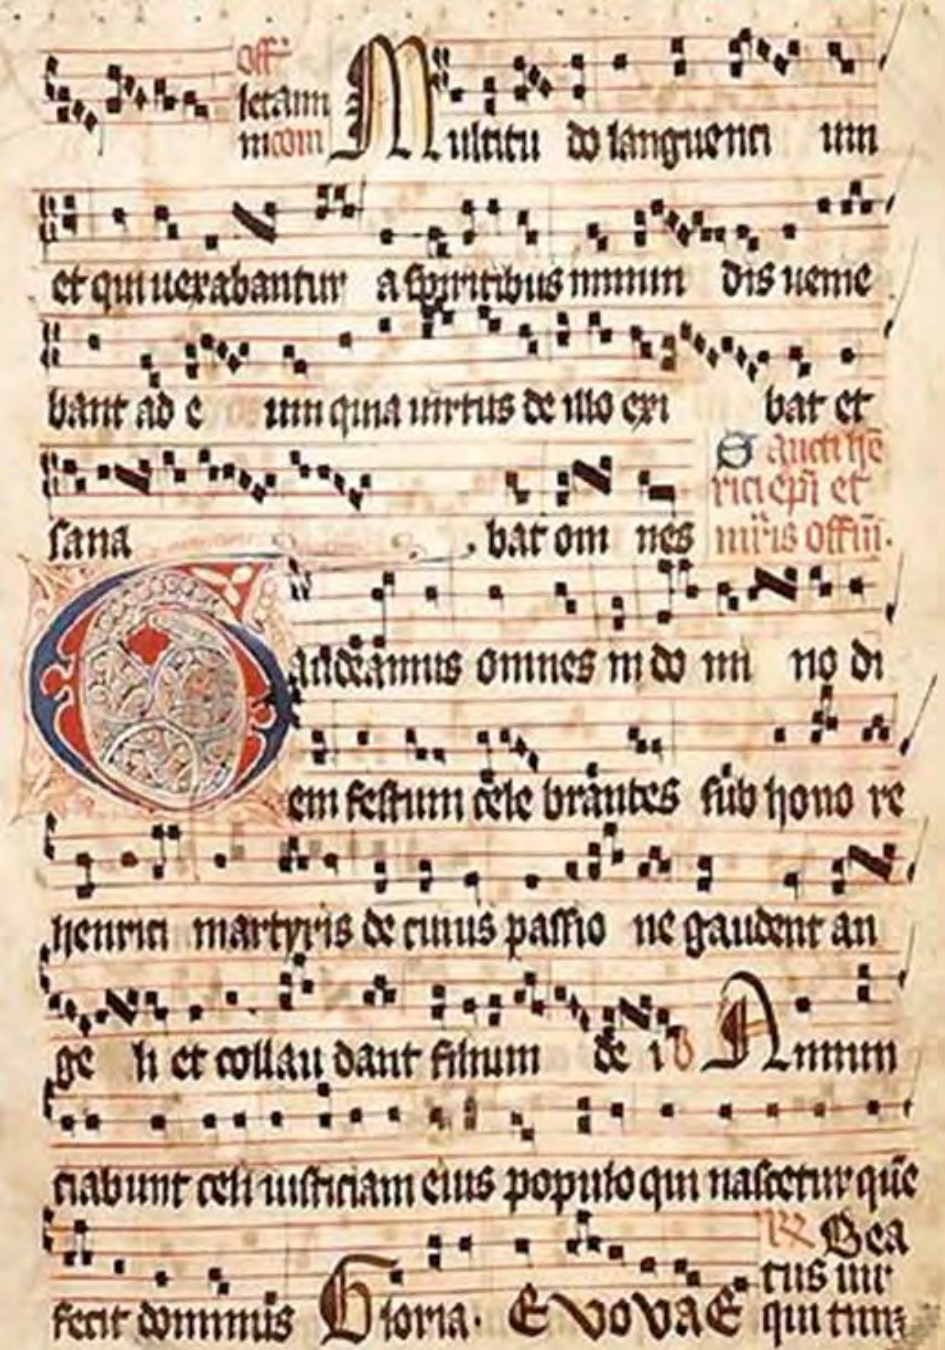 off
letami
ni com
Multitu do languenti um
et qui uexabantur a spiritibus inmun dis uenie
bant ad e um quia uirtus de illo exi bat et
sana bat om nes
Sancti hē
rici epi et
mris offm.
Gaudeamus omnes in do mi no di
em festum cele brantes sub hono re
henrici martyris de cuius passio ne gaudent an
ge li et collau dant filium de i Annun
ciabunt celi iusticiam eius populo qui nascetur quē
fecit dominus Gloria. EVOVAE
Bea
tus uir
qui tim